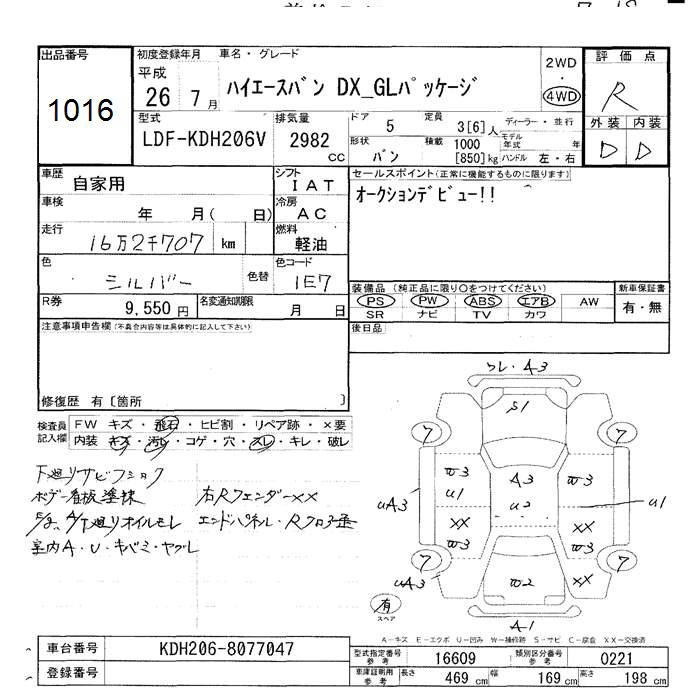 出品番号 1016
初度登録年月 車名・グレード
平成 26 7月 ハイエースバン DX_GLパッケージ
2WD ・ 4WD
評価点
R
外装 内装
D D
型式 LDF-KDH206V
排気量 2982 CC
ドア 5 定員 3[6]人 ディーラー・並行
形状 バン 積載 1000 [850]kg モデル年式 年
ハンドル 左・右
車歴 自家用
シフト IAT
セールスポイント(正常に機能するものに限ります)
オークションデビュー!!
車検 年 月( 日)
冷房 AC
走行 16万2千707 km
燃料 軽油
色 シルバー 色替
色コード 1E7
装備品 (純正品に限り○をつけてください) 新車保証書
PS PW ABS エアB AW 有・無
SR ナビ TV カワ
R券 9,550円 名変通知期限 月 日
後日品
注意事項申告欄(不具合内容等は具体的に記入して下さい)
修復歴 有〔箇所 〕
検査員記入欄
FW キズ・飛石・ヒビ割・リペア跡・×要
内装 キズ・汚れ・コゲ・穴・スレ・キレ・破レ
下廻りサビフショク
ボデー看板塗棟 右Rフェンダーxx
下廻りオイルモレ エンドパネル・Rフロア歪
室内A・U・キバミ・ヤブレ
A3
S1
7 7
A3
W3 W3
U1 U2 U1
UA3
XX XX
W3 W3
7 7
UA3
W2 XX
A1
有
スペア
A-キズ E-エクボ U-凹み W-補修跡 S-サビ C-腐食 XX-交換済
車台番号 KDH206-8077047
登録番号
型式指定番号 参考 16609 類別区分番号 参考 0221
車庫証明用 参考 長さ 469 cm 幅 169 cm 高さ 198 cm